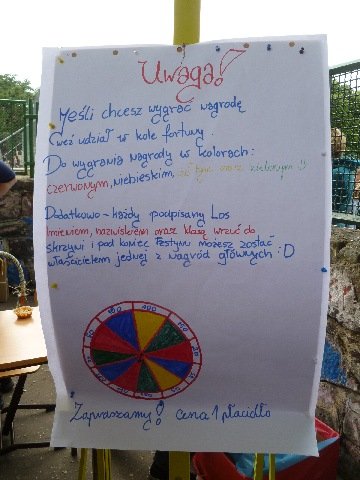 Uwaga!
Jeśli chcesz wygrać nagrodę
weź udział w kole fortuny.
Do wygrania nagrody w kolorach:
czerwonym, niebieskim, żółtym oraz zielonym :)
Dodatkowo - każdy podpisany Los
Imieniem, nazwiskiem oraz klasą wrzuć do
skrzyni i pod koniec festynu możesz zostać
właścicielem jednej z nagród głównych :D
Zapraszamy! cena 1 płacidło